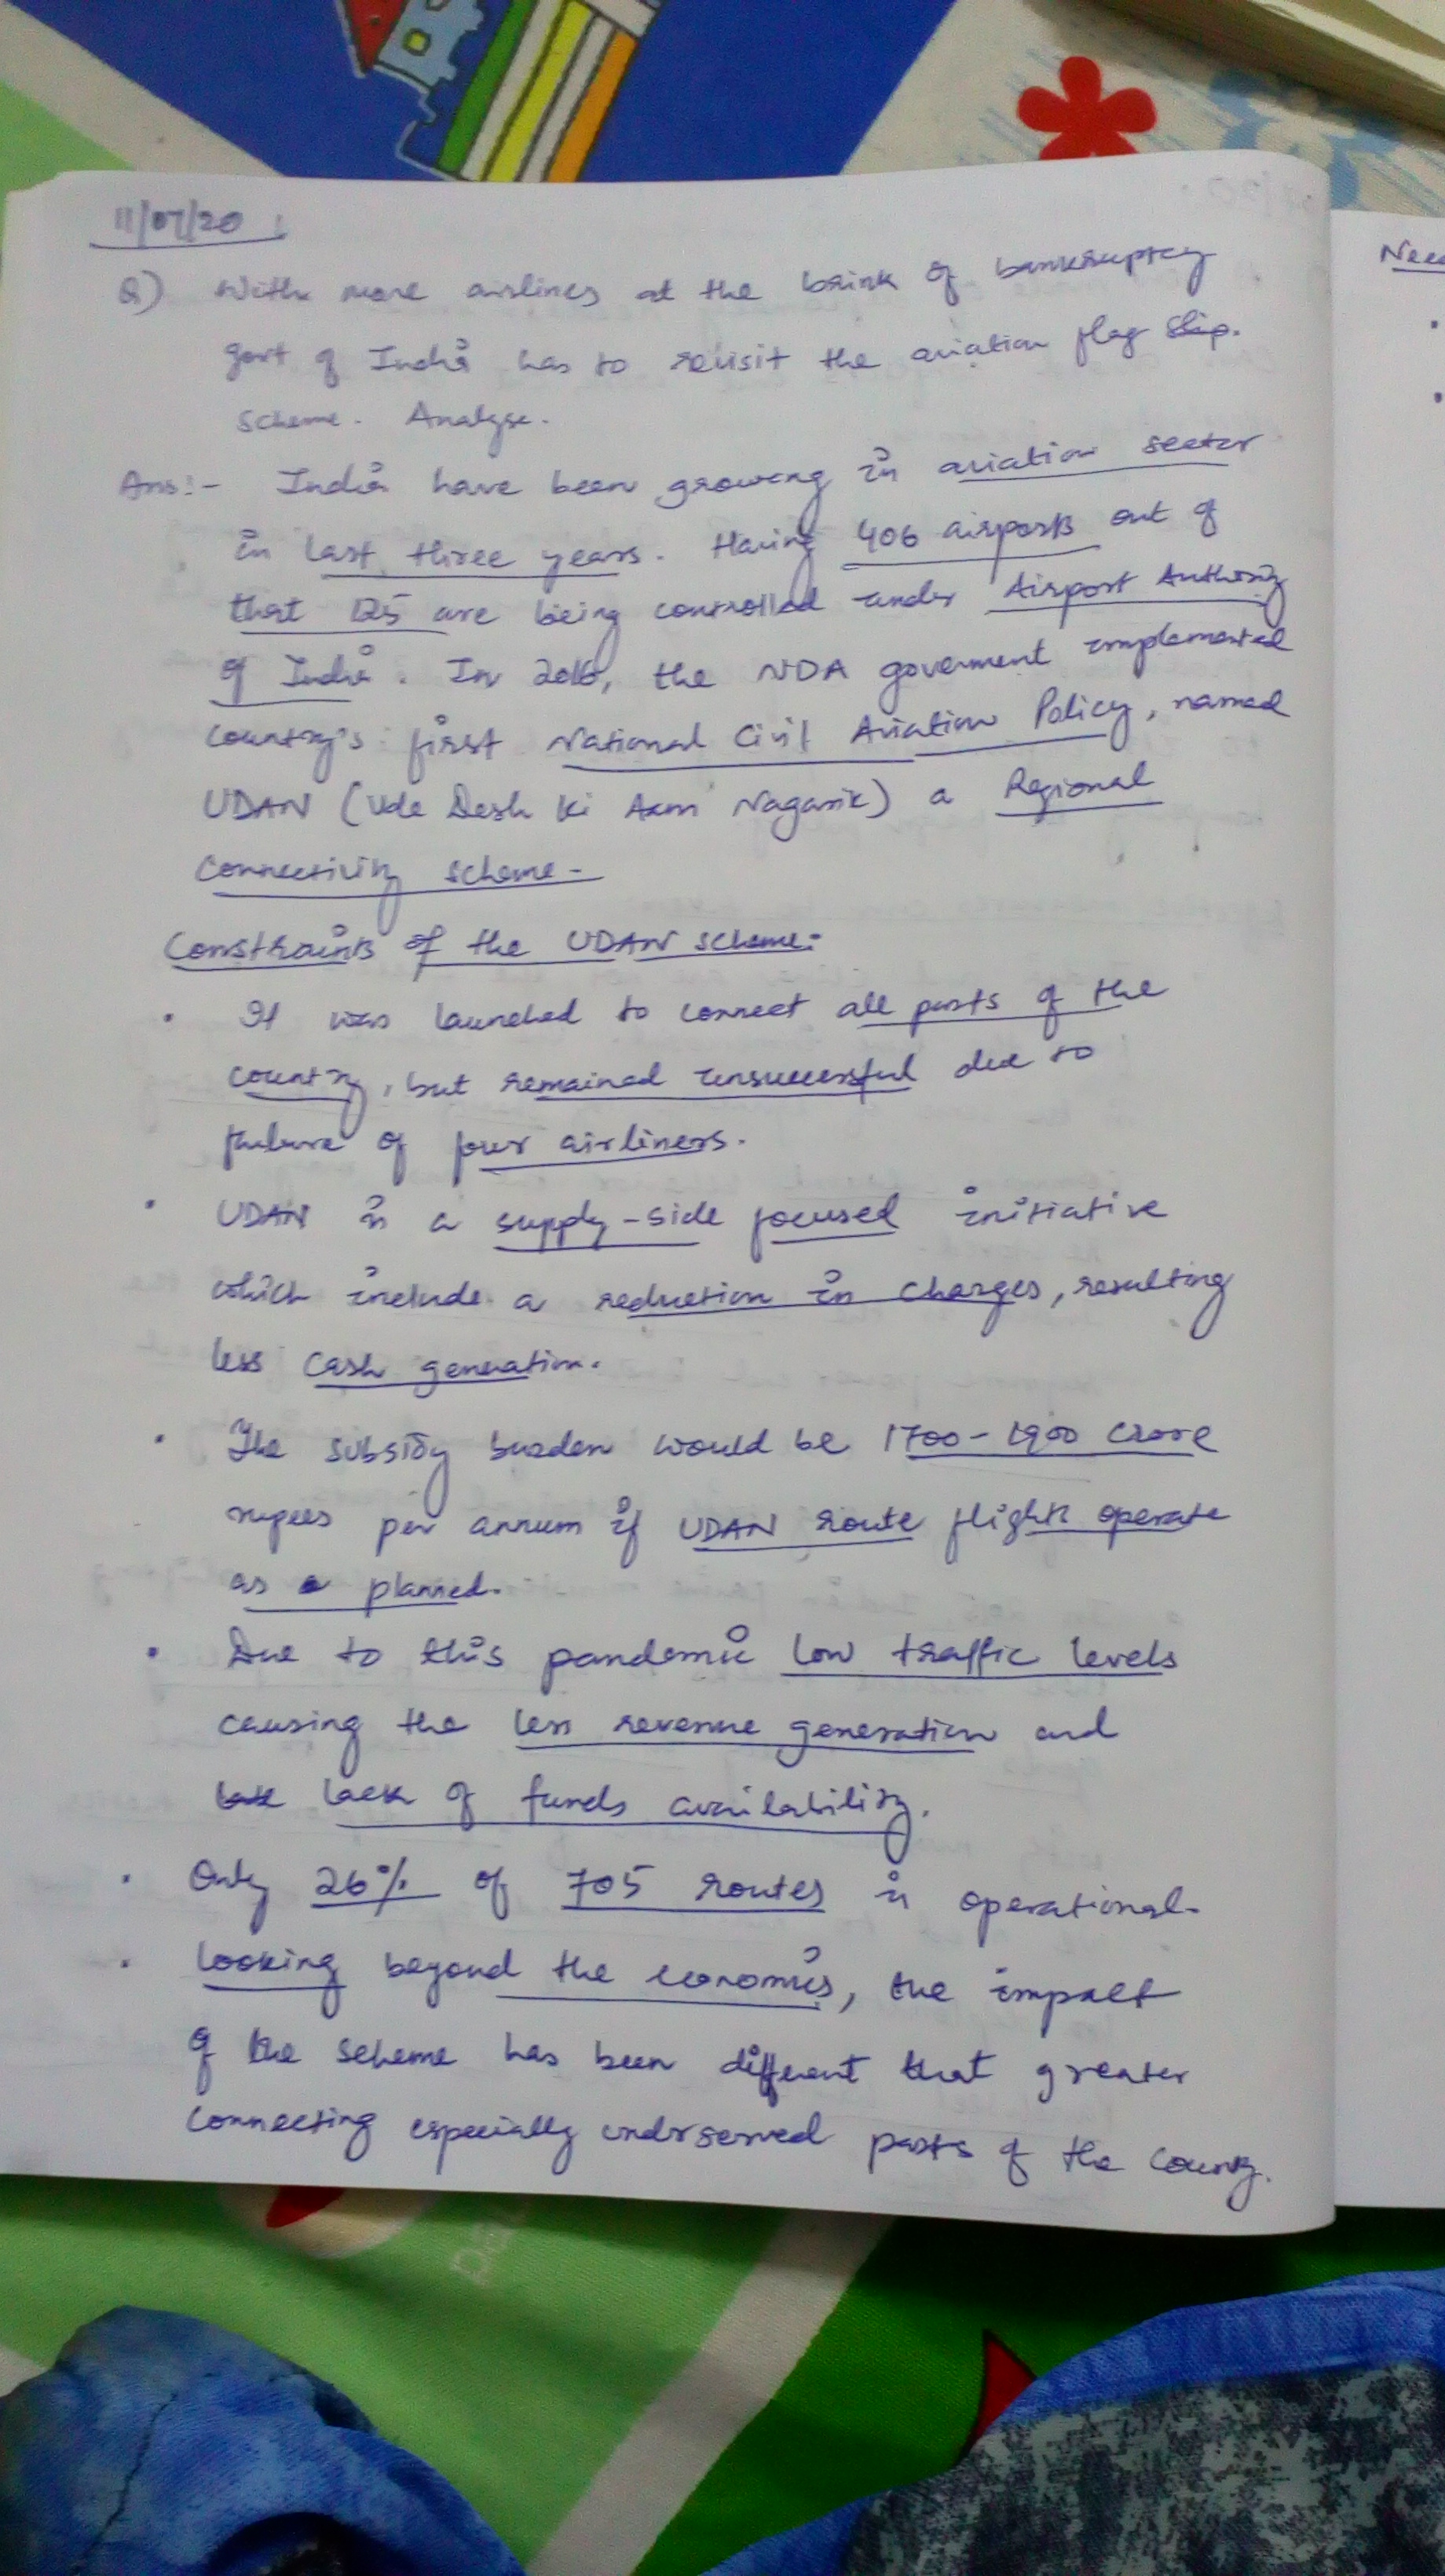 11/07/20
Q) With more airlines at the brink of bankruptcy
govt of India has to revisit the aviation flag ship.
scheme. Analyse.
Ans:- India have been growing in aviation sector
in last three years. Having 406 airports out of
that 125 are being controlled under Airport Authority
of India. In 2016, the NDA goverment implemented
country's first National Civil Aviation Policy, named
UDAN (Ude Desh Ki Aam Nagarik) a Regional
Connectivity scheme-
Constraints of the UDAN scheme:
• It was launched to connect all parts of the
country, but remained unsuccessful due to
failure of four airliners.
• UDAN is a supply-side focused initiative
which include a reduction in charges, resulting
less cash generation.
• The subsidy burden would be 1700-1900 crore
rupees per annum if UDAN route flights operate
as planned.
• Due to this pandemic low traffic levels
causing the less revenue generation and
lack of funds availability.
• Only 26% of 705 routes is operational.
• Looking beyond the economics, the impact
of the scheme has been different that greater
connecting especially underserved parts of the country.